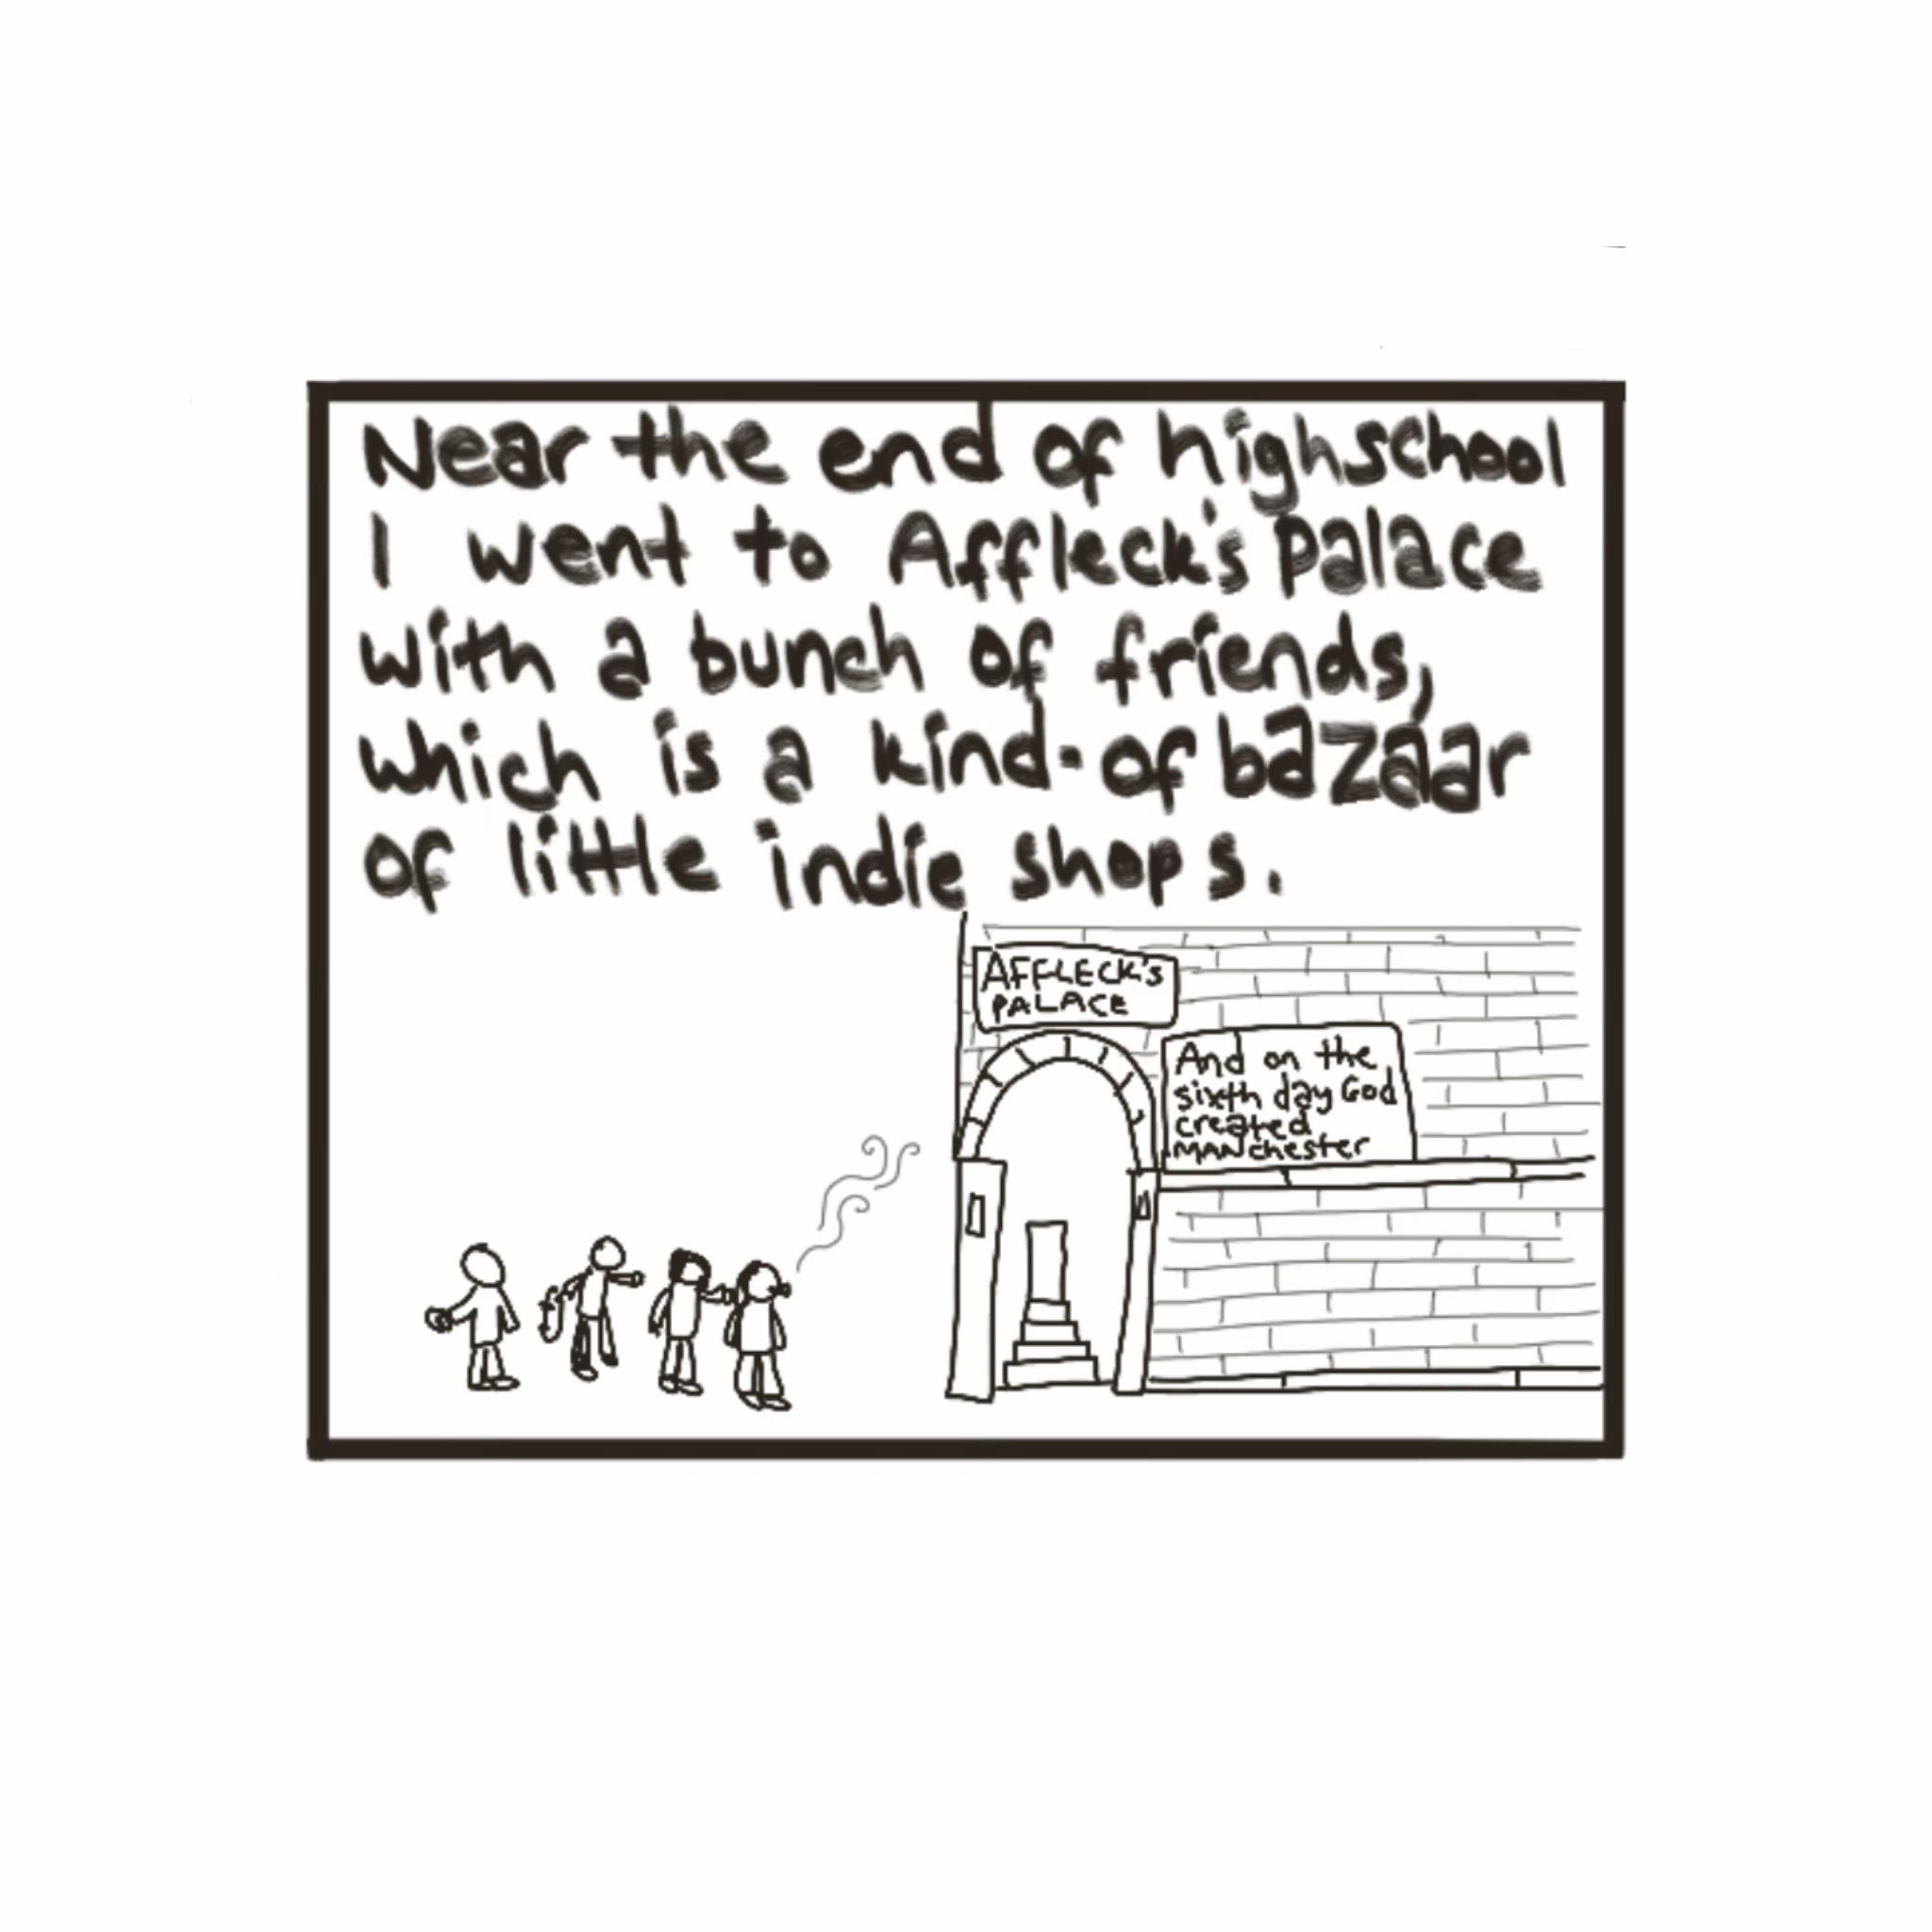 Near the end of highschool
I went to Affleck's Palace
with a bunch of friends,
which is a kind-of bazaar
of little indie shops.
AFFLECK'S
PALACE
And on the
sixth day God
created
MANchester